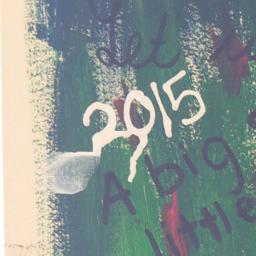 Let
2015
A big
little